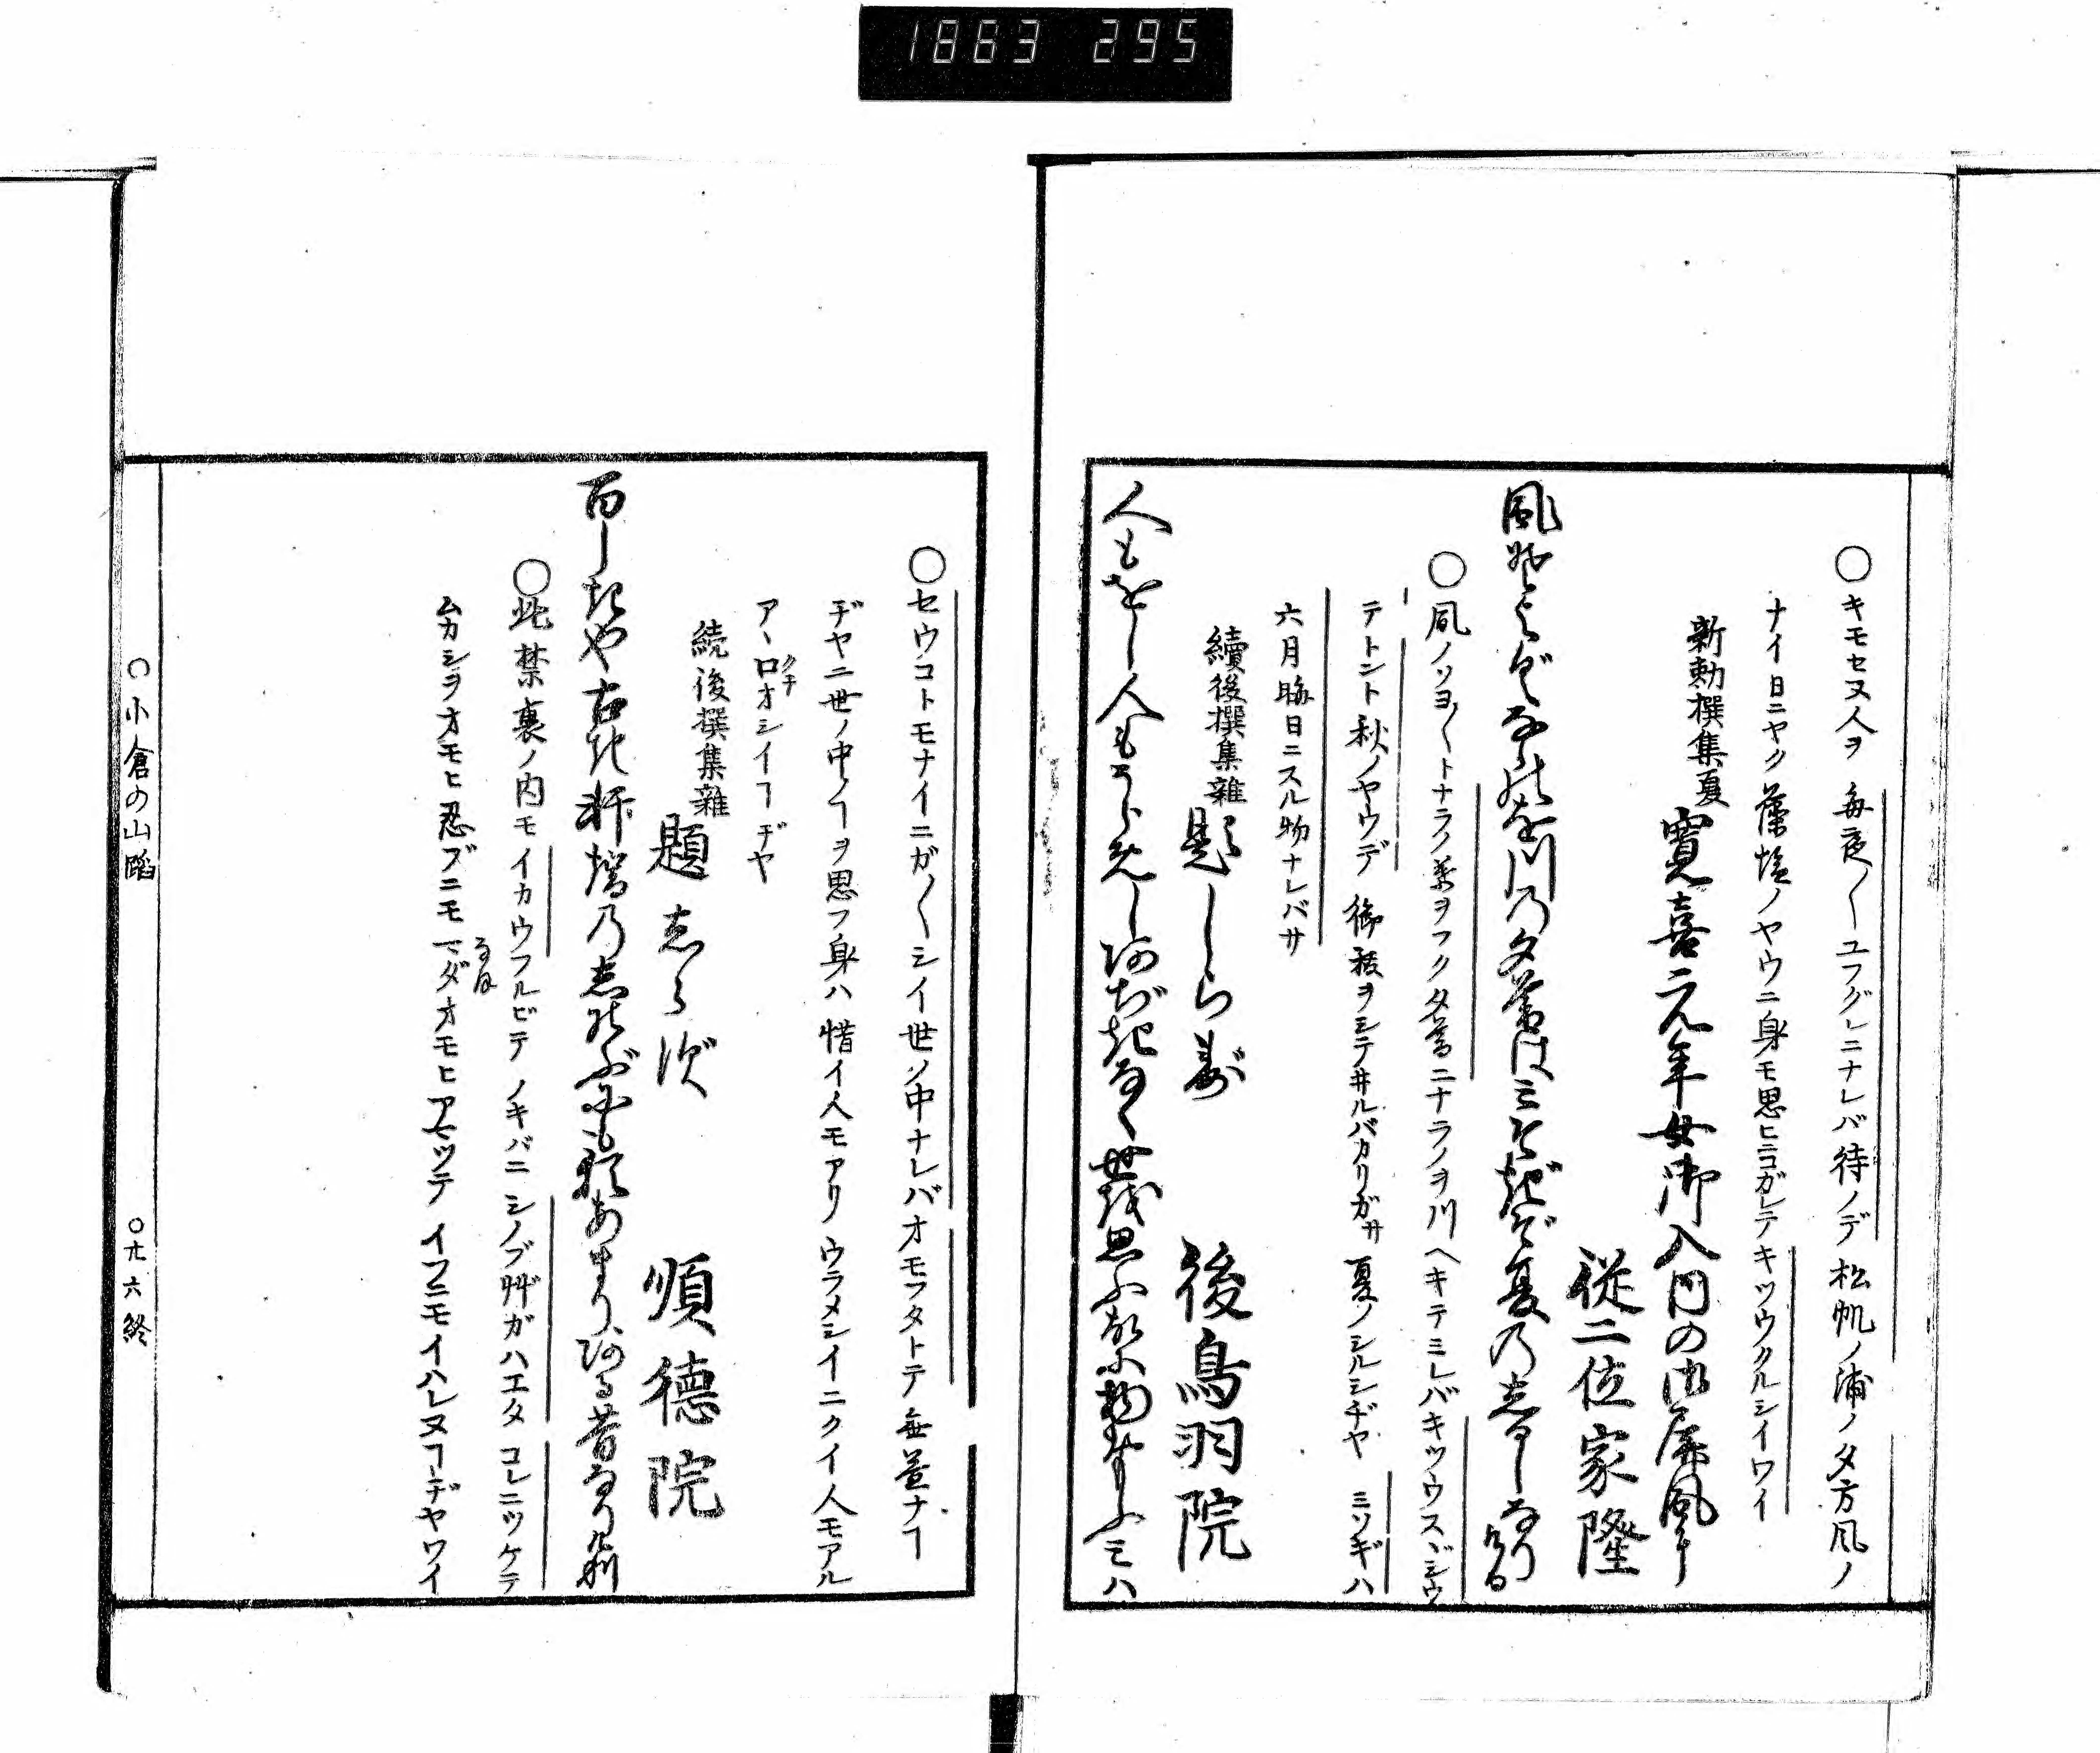 1863 295
○キモセヌ人ヲ毎夜〱ユフグレニナレバ待ノデ松帆ノ浦ノ夕方風ノ
ナイ日ニヤク藻塩ノヤウニ身モ思ヒニコガレテキツウクルシイワイ
新勅撰集夏 寛喜元年女御入内の御屏風に
従二位家隆
風そよぐならの小川の夕暮はみそぎぞ夏のしるしなりける
○風ノソヨ〱トナラノ葉ヲフク夕暮ニナラノヲ川ヘキテミレバキツウスヾシウ
テトント秋ノヤウデ御祓ヲシテヰルバカリガサ夏ノシルシヂヤ ミソギハ
六月晦日ニスル物ナレバサ
續後撰集雜 題しらず 後鳥羽院
人もをし人もうらめしあぢきなく世を思ふ故に物おもふミハ
○セウコトモナイニガ〱シイ世ノ中ナレバオモフタトテ無益ナヿ
ヂヤニ世ノ中ノヿヲ思フ身ハ惜イ人モアリウラメシイニクイ人モアル
アヽ口オシイヿヂヤ
クチ
続後撰集雜 題志らず 順德院
百しきや古き軒端の志のぶにも猶あまりある昔なりけり
○此禁裏ノ内モイカウフルビテノキバニシノブ艸ガハエタコレニツケテ
ムカシヲオモヒ忍ブニモマダオモヒアマツテイフニモイハレヌヿヂヤワイ
なほ
○小倉の山踏 ○廾六終